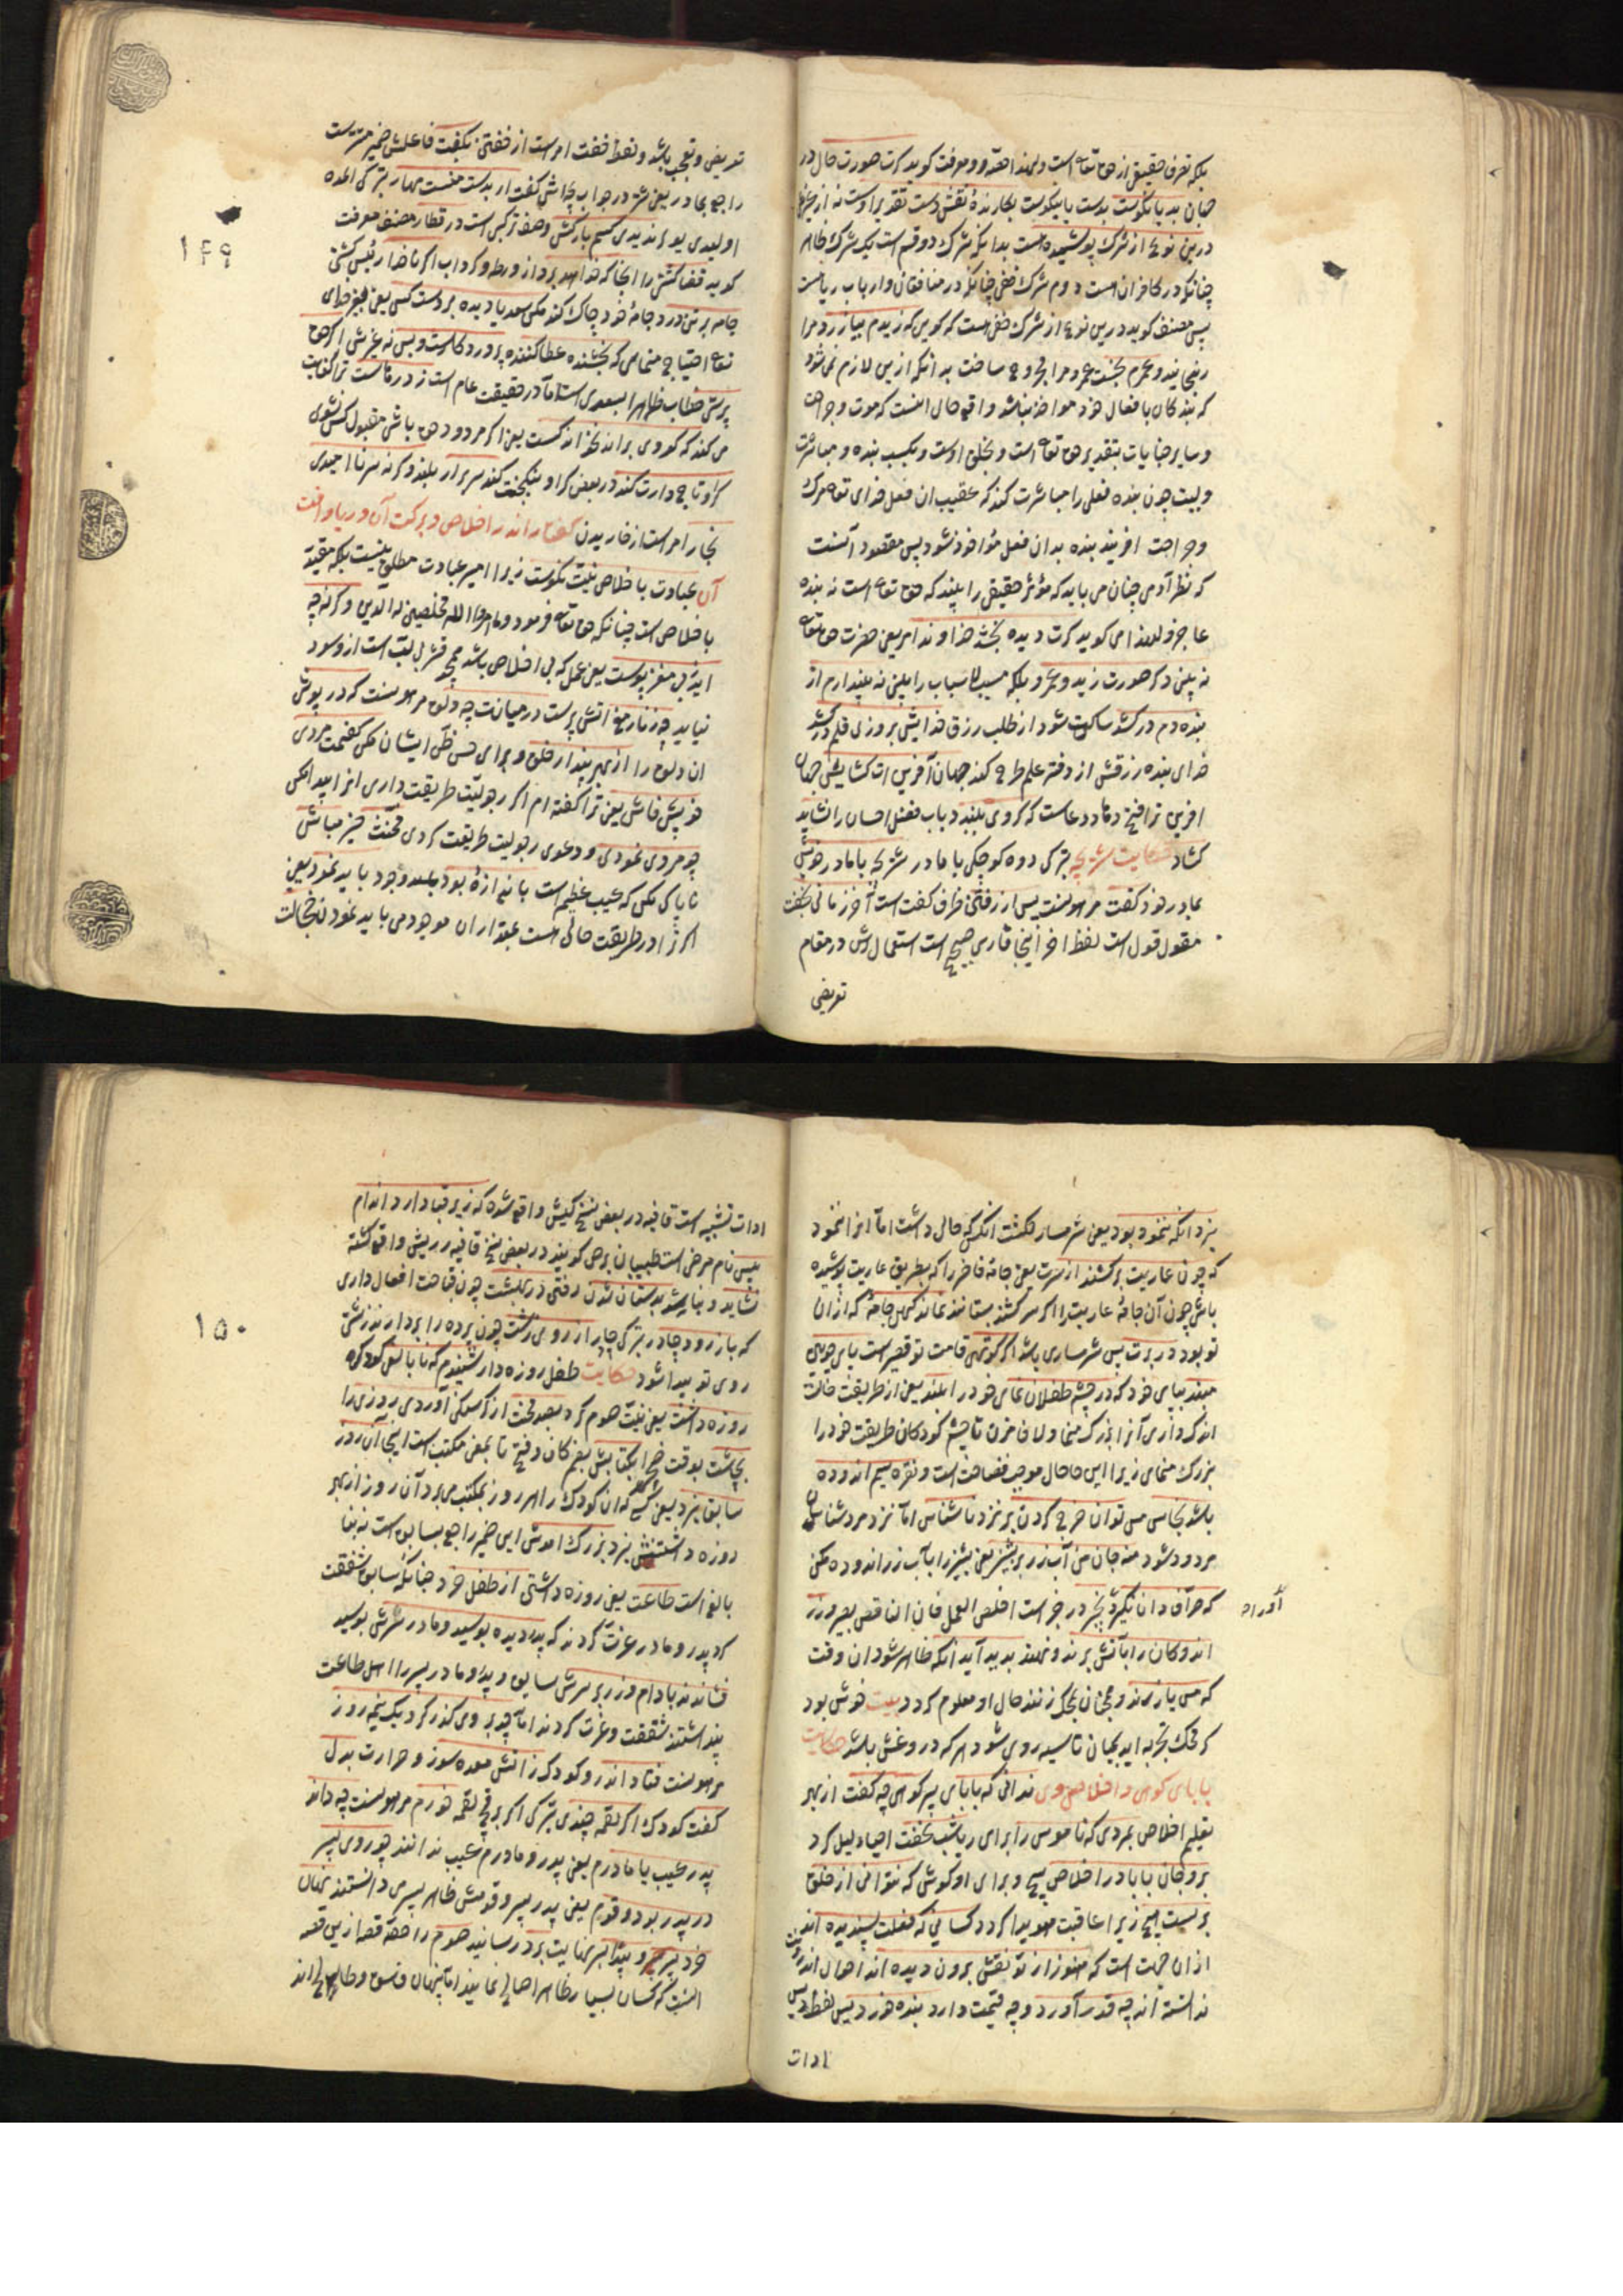 بلکه تعرف حقیقی از حق تعالی است
جهان بد یا نکوست بدست یا نیکوست نگارندهٔ نقش دست تقدیر اوست نه از غیر
درین نوعی از شرک پوشیده هست بدانکه شرک دو قسم است یک شرک ظاهر
چنانکه در کافران است دوم شرک خفی چنانکه در منافقان و ارباب ریاست
پس مصنف کوید درین نوعی از شرک خفی هست که کویی که زیدم بیازرد مرا
رنجانید و عمرم بخست عمرو مرا مجروح ساخت بدانکه ازین لازم نمی شود
که بندکان بافعال خود مواخذ نباشد واقع حال اینست که موت و جراحت
و سایر جنایات بتقدیر حق تعالی است و بخلق اوست و بکسب بنده و مباشرت
چون بنده فعلی را مباشرت کند که عقیب ان فعل خدای تعالی مرک
و جراحت افریند بنده بدان فعل مؤاخذ شود پس مقصود آنست
که نظر آدمی چنان می باید که مؤثر حقیقی را بیند که حق تعالی است نه بنده
عاجز و لهذا می کوید کرت دیده بخشد خداوند امر یعنی حضرت حق تعالی
نه بینی دکر صورت زید و عمرو بلکه مسبب الاسباب را بینی نه پندارم از
بنده دم درکشد ساکت شود از طلب رزق خدایش بروزی قلم درکشد
خدای بنده رزقش از دفتر علم طرح کند جهان آفرین ات کشایش جهان
افرین ترا فتح دهاد دعاست که کر وی ببندد باب فضل احسان را نشاید
کشاد حکایت شتر بچه بترکی دوه کوچکی با مادر شتر بچه با مادر خویش
بمادر خود کفت مرهونست پس از رفتن ظرف کفت است آخر زمانی بخفت
مقول قول است لفظ اخر اینجا فارسی صحیح است استعمالش در مقام
تعریض
تعریض و تعجب باشد و لفظ خفت امر است از خفتن بکفت فاعلش ضمیر مستترست
راجع بمادر یعنی شتر در جواب بچه اش کفت ار بدست منستی مهار بترکی المده
اولیدی یولر ندیدی کسم بارکش وصف ترکیبی است در قطار مصنف معرفت
کوید قضا کشتی را انجا که خواهد برد از ورطه و کرداب اکر ناخدا رئیس کشتی
جامه بر تن درد جامهٔ خود چاک کند مکن سعدیا دیده بر دست کس یعنی بغیر خدای
تعالی احتیاج منمای که بخشنده عطا کننده پروردکارست و بس نه غیرش اکر حق
پرستی خطاب ظاهرا بسعدی است اما در حقیقت عام است ز درها بست ترا کفایت
می کند که کر وی براند نخواند کست یعنی اکر مردود حق باشی مقبول کس نشوی
کر او تاجدارت کند در بعض کر او نیکبخت کند سر برار بلند و کرنه سر ناامیدی
بخار امر است از خاریدن گفتار اندر اخلاص و برکت آن و ریا و افت
آن عبادت باخلاص نیت نکوست زیرا امیر عبادت مطلق نیست بلکه مقید
باخلاص است چنانکه حق تعالی فرمود وما امروا الا لیعبدوا الله مخلصین له الدین و کرنه چه
اید ز بی مغز پوست یعنی عمل که بی اخلاص باشد همچو قشر بی لب است ازو سود
نیاید چه زنار مغ اتش پرست در میانت چه دلق مرهونست که در پوشی
ان دلق را از بهر پندار خلق و برای حسن ظن ایشان مکن کفتمت مردی
خویش فاش یعنی ترا کفته ام اکر رجولیت طریقت داری انرا پیدا مکن
چو مردی نمودی و دعوی رجولیت طریقت کردی مخنث حیز مباش
ناپاکی مکن که عیب عظیم است باندازهٔ بود باید نمود یعنی
اکر ترا در طریقت حالی هست بمقدار ان موجود می باید نمود نه خجالت
۱۴۹
نبرد انکه ننمود و بود یعنی شرمسار نکشت انکس که حالی داشت اما انرا ننمود
که چون عاریت برکشند از سرت یعنی جامهٔ فاخر را که بطریق عاریت پوشیده
باشی چون آن جامهٔ عاریت را اکر سر کشند بستانند نماند کهن جامهٔ که از ان
تو بود در برت پس شرمساری باشد اکر کوتهی قامت تو قصیر است پای چوبین
مبند بپای خود که در چشم طفلان نمای خود را بلند یعنی از طریقت حالت
اندک داری آنرا بزرک منما و لاف مزن تا چشم کودکان طریقت خود را
بزرک منمای زیرا این حال موجب فضاحت است و نقره سیم اندوده
باشد نحاس مس توان خرج کردن بر نزد ناشناس اما نزد مردشناسان
مردود شود منه جان من آب زر بر پشیز یعنی پشیز را بآب زر اندوده مکن
که صراف دانا نکیرد بچیز در خبر است اخلص العمل فان الناقد بصیر زر
اندودکان را بآتش برند و نهند پدید آید انکه ظاهر شود ان وقت
که مس یا زرند و همچنان بمحک زنند حال او معلوم کردد بیت خوش بود
کر محک تجربه اید بمیان تا سیه روی شود هر که درو غش باشد حکایت
بابای کوهی و اخلاص وی ندانی که بابای پیر کوهی چه کفت از بهر
تعلیم اخلاص بمردی که ناموس را برای ریا شب نخفت احیاء لیل کرد
برو جان بابا در اخلاص پیچ و برای او کوش که نتوانی از خلق
بربست هیچ زیرا عاقبت هویدا کردد کسانی که فعلت پسندیده اند
از ان جهت است که هنوز از تو نقش برون دیده اند احوال اندرونت
ندانسته اند چه قدر آورد و چه قیمت دارد بنده حور دیس لفظ دیس
آورد
ادات
ادات تشبیه است قافیه در بعض نسخ کیش واقع شده که زیر قبا دارد اندام
پیس نام مرض است طبیبان برص کویند در بعض نسخ قافیه ریش واقع کشته
نشاید و نباید شد بدستان شدن رفتن در بهشت چون قباحت افعال داری
که باز رود چادر بترکی چار از روی زشت چون پرده را بردارند زشتی
روی تو پیدا شود حکایت طفل روزه دار شنیدم که نابالغی کودک
روزه داشت یعنی نیت صوم کرد بصد محنت از کرسنکی آورد روزی را
بچاشت بوقت ضحی بکتابش بضم کاف و فتح تا بمعنی مکتب است اینجا آن روز
سابق نبرد یعنی کسی که ان کودک را هر روز بمکتب می برد آن روز از بهر
روزه داشتنش نبرد بزرک امدش این ضمیر راجع بسابق است نه بنا
بالغ است طاعت یعنی روزه داشتن از طفل خرد چنانکه سابق شفقت
کرد پدر و مادر عزت کردند که پدر دیده بوسید و مادر سرش بوسید
فشاندند بادام و زر بر سرش سابق و پدر و مادر پسر را اهل طاعت
پنداشتند شفقت و عزت کردند اما چو بر وی کذر کرد یک نیمه روز
مرهونست فتاد اندرو کودک ز اتش معده سوز و حرارت بدل
کفت کودک اکر لقمه چندی بترکی اکر بر قچ لقمه خورم مرهونست چه داند
پدر عیب یا مادرم یعنی پدر و مادرم عیب ندانند چو روی پسر
در پدر بود و قوم یعنی پدر پسر و قومش ظاهر پسر می دانستند نهان
خورد پسر و پیدا بسر نهایت برد رسانید صوم را حصه قصه ازین قصه
اینست که کسان بسیار ظاهر اصلاح نمایند اما پنهان فسوق و طالح اند
۱۵۰